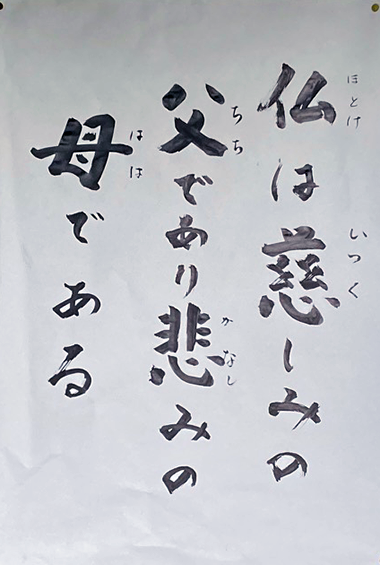 仏は慈しみの
ほとけ いつく
父であり悲みの
ちち かなし
母である
はは